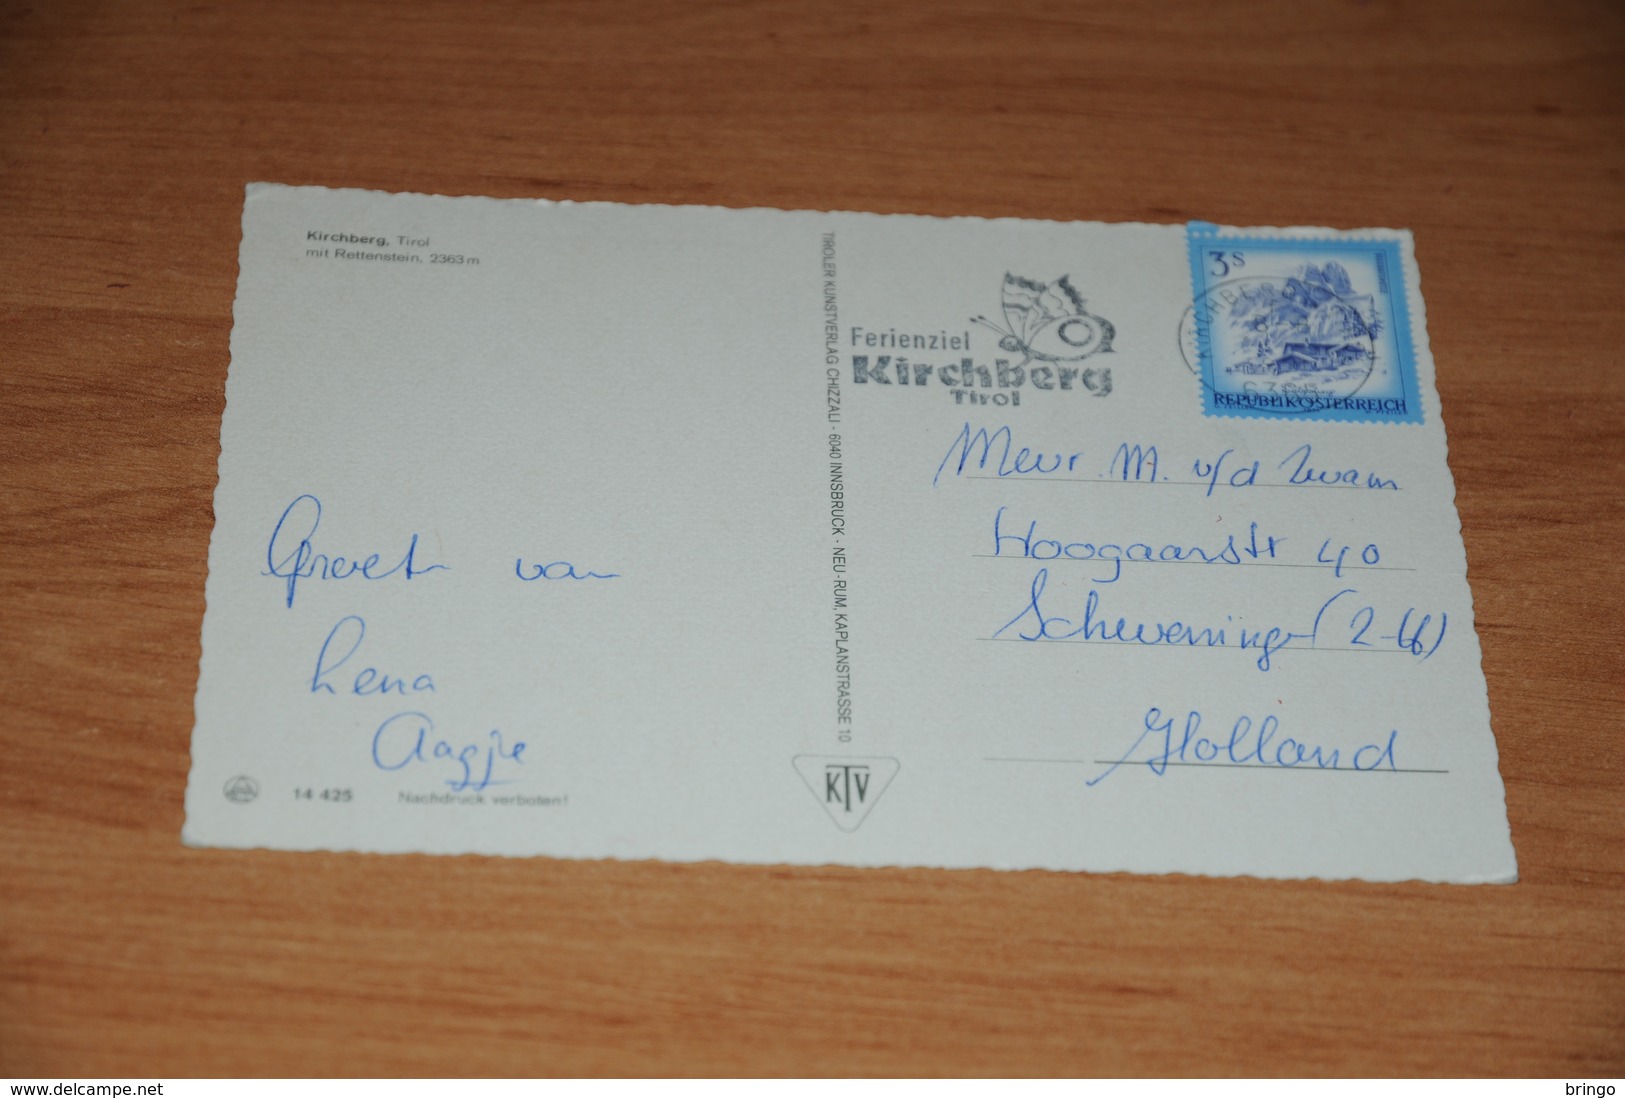 Kirchberg, Tirol
mit Rettenstein, 2363 m
Groet van
Lena
Aagje
14 425
Nachdruck verboten!
TIROLER KUNSTVERLAG CHIZZALI - 6040 INNSBRUCK - NEU-RUM, KAPLANSTRASSE 10
KTV
Ferienziel
Kirchberg
Tirol
3 S
REPUBLIK ÖSTERREICH
KIRCHBERG
Mevr. M. v/d Zwam
Hoogaarsstr 40
Scheveningen (2-66)
Holland
www.delcampe.net
bringo